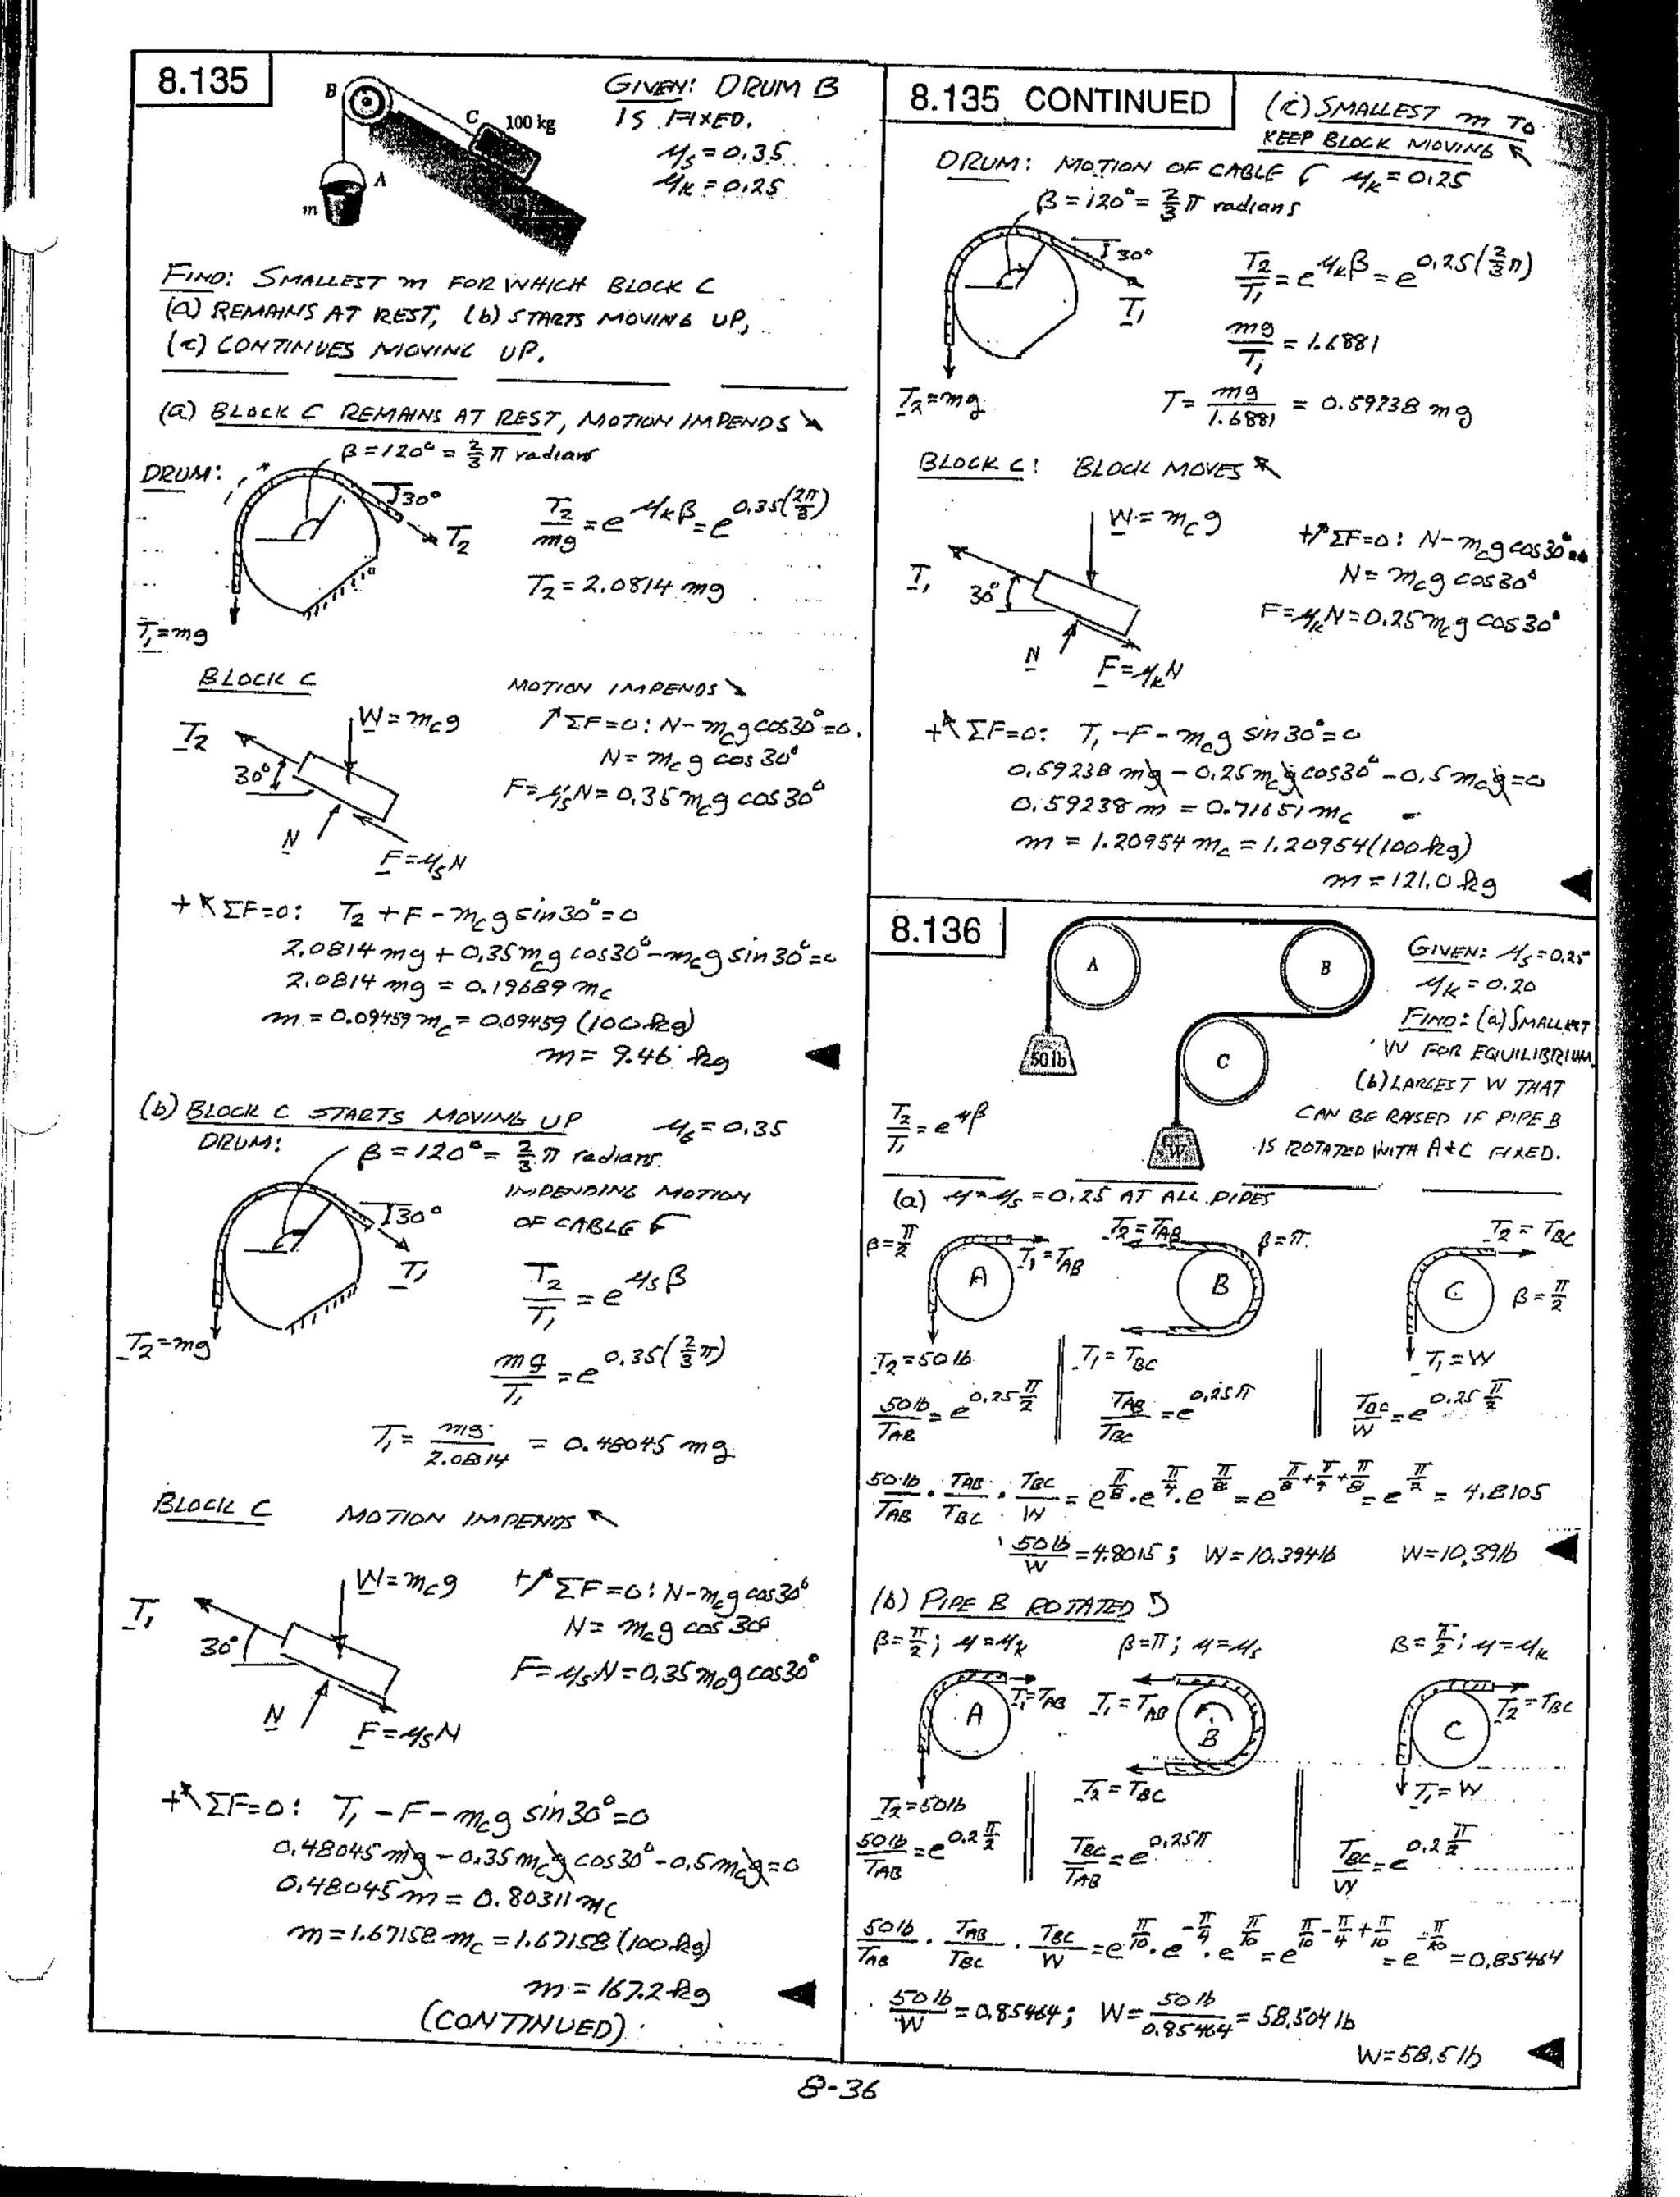 8.135
B
C
100 kg
A
m
30°
GIVEN: DRUM B
IS FIXED.
μs = 0.35
μk = 0.25
FIND: SMALLEST m FOR WHICH BLOCK C
(a) REMAINS AT REST, (b) STARTS MOVING UP,
(c) CONTINUES MOVING UP.
(a) BLOCK C REMAINS AT REST, MOTION IMPENDS ↘
β = 120° = 2/3 π radians
DRUM:
30°
T2
T2/mg = e^μkβ = e^0.35(2π/3)
T2 = 2.0814 mg
T1 = mg
BLOCK C
MOTION IMPENDS ↘
T2
W = mcg
30°
N
F = μsN
↗ΣF=0: N - mcg cos30° = 0.
N = mc g cos 30°
F = μsN = 0.35 mcg cos30°
+↖ΣF=0: T2 + F - mcg sin30° = 0
2.0814 mg + 0.35 mcg cos30° - mcg sin30° = 0
2.0814 mg = 0.19689 mc
m = 0.09459 mc = 0.09459 (100 kg)
m = 9.46 kg
(b) BLOCK C STARTS MOVING UP μs = 0.35
DRUM:
β = 120° = 2/3 π radians.
IMPENDING MOTION
OF CABLE
30°
T1
T2/T1 = e^μsβ
T2 = mg
mg/T1 = e^0.35(2/3 π)
T1 = mg/2.0814 = 0.48045 mg
BLOCK C MOTION IMPENDS ↖
T1
W = mcg
30°
N
F = μsN
+↗ΣF=0: N - mcg cos30°
N = mcg cos 30°
F = μsN = 0.35 mcg cos30°
+↖ΣF=0: T1 - F - mcg sin30° = 0
0.48045 mg - 0.35 mcg cos30° - 0.5 mcg = 0
0.48045 m = 0.80311 mc
m = 1.67158 mc = 1.67158 (100 kg)
m = 167.2 kg
(CONTINUED)
8.135 CONTINUED
(c) SMALLEST m TO
KEEP BLOCK MOVING ↖
DRUM: MOTION OF CABLE μk = 0.25
β = 120° = 2/3 π radians
30°
T1
T2/T1 = e^μkβ = e^0.25(2/3 π)
mg/T1 = 1.6881
T2 = mg
T = mg/1.6881 = 0.59238 mg
BLOCK C: BLOCK MOVES ↖
T1
W = mcg
30°
N
F = μkN
+↗ΣF=0: N - mcg cos30° = 0
N = mcg cos30°
F = μkN = 0.25 mcg cos30°
+↖ΣF=0: T1 - F - mcg sin30° = 0
0.59238 mg - 0.25 mcg cos30° - 0.5 mcg = 0
0.59238 m = 0.71651 mc
m = 1.20954 mc = 1.20954 (100 kg)
m = 121.0 kg
8.136
A
B
C
50 lb
W
GIVEN: μs = 0.25
μk = 0.20
FIND: (a) SMALLEST
W FOR EQUILIBRIUM
(b) LARGEST W THAT
CAN BE RAISED IF PIPE B
IS ROTATED WITH A & C FIXED.
T2/T1 = e^μβ
(a) μ = μs = 0.25 AT ALL PIPES
β = π/2
A
T1 = TAB
T2 = 50 lb
T2 = TAB
β = π.
B
T1 = TBC
T2 = TBC
C
β = π/2
T1 = W
50 lb/TAB = e^0.25 π/2
TAB/TBC = e^0.25π
TBC/W = e^0.25 π/2
50 lb/TAB · TAB/TBC · TBC/W = e^π/8 · e^π/4 · e^π/8 = e^π/8+π/4+π/8 = e^π/2 = 4.8105
50 lb/W = 4.8015; W = 10.394 lb W = 10.39 lb
(b) PIPE B ROTATED
β = π/2; μ = μk
β = π; μ = μs
β = π/2; μ = μk
A
T1 = TAB
T2 = 50 lb
T1 = TAB
B
T2 = TBC
T2 = TBC
C
T1 = W
50 lb/TAB = e^0.2 π/2
TBC/TAB = e^0.25π
TBC/W = e^0.2 π/2
50 lb/TAB · TAB/TBC · TBC/W = e^π/10 · e^-π/4 · e^π/10 = e^π/10-π/4+π/10 = e^-π/20 = 0.85464
50 lb/W = 0.85464; W = 50 lb/0.85464 = 58.504 lb
W = 58.5 lb
8-36